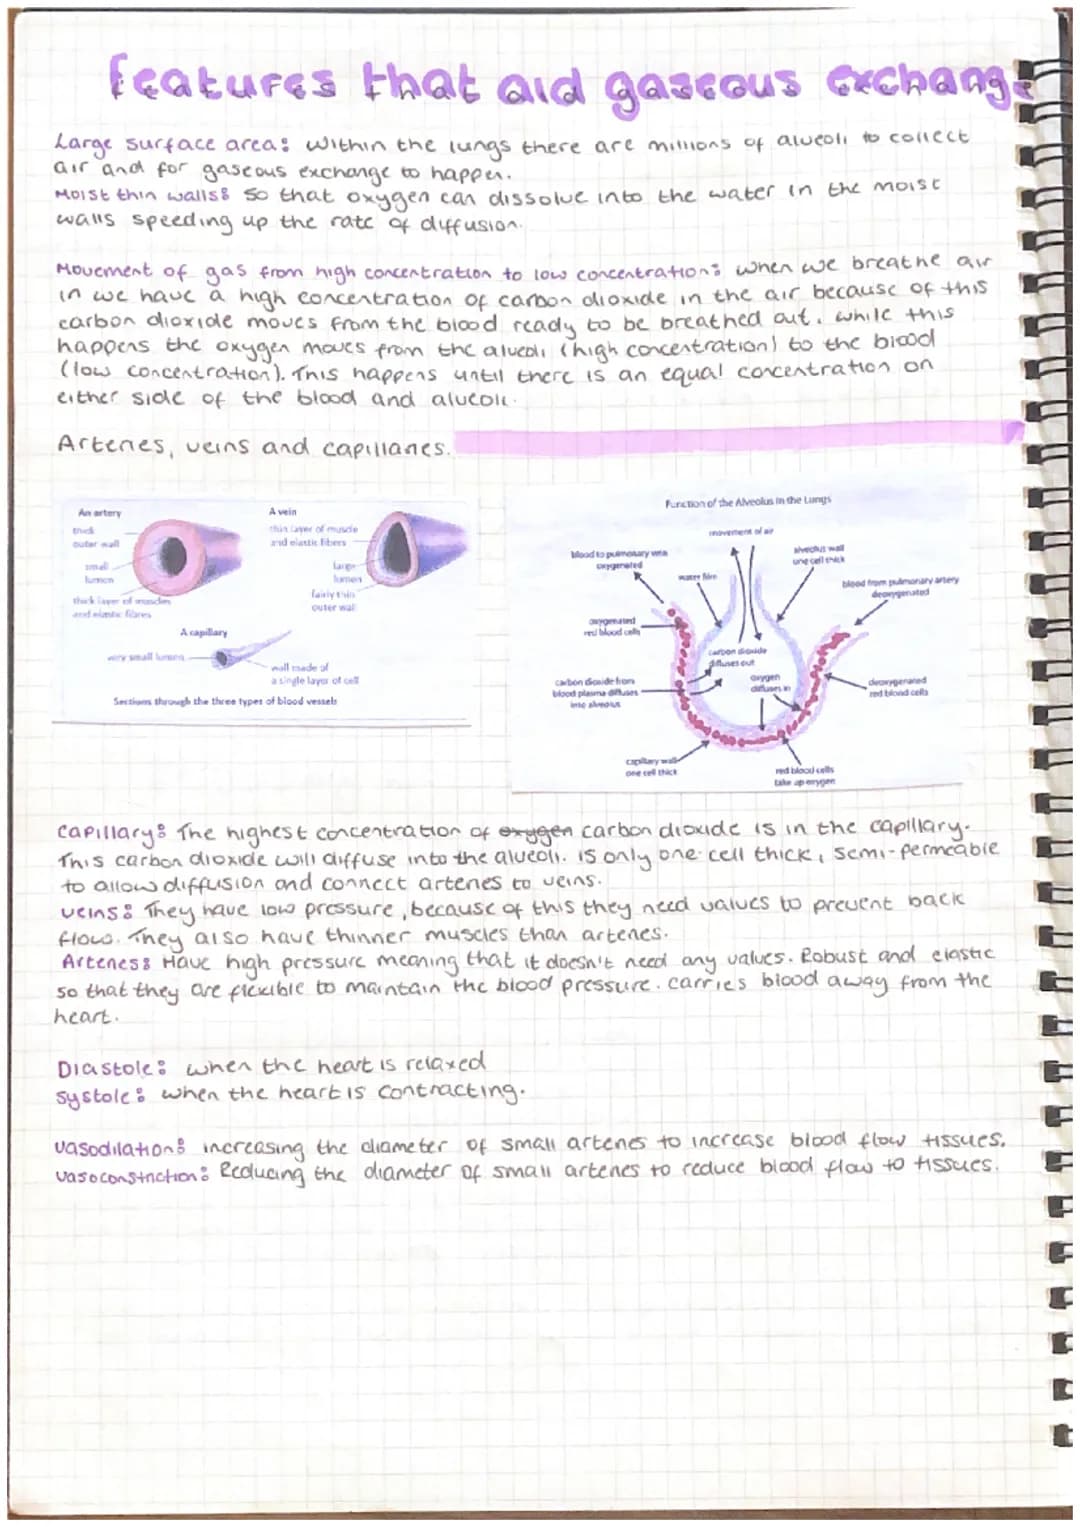 features that aid gaseous exchange
Large surface area: within the lungs there are millions of alveoli to collect
air and for gaseous exchange to happen.
Moist thin walls: so that oxygen can dissolve into the water in the moist
walls speeding up the rate of diffusion.
Movement of gas from high concentration to low concentration: when we breathe air
in we have a high concentration of carbon dioxide in the air because of this
carbon dioxide moves from the blood ready to be breathed out. while this
happens the oxygen moves from the alveoli (high concentration) to the blood
(low concentration). This happens until there is an equal concentration on
either side of the blood and alveoli.
Arteries, veins and capillaries.
An artery
thick
outer wall
small
lumen
thick layer of muscles
and elastic fibres
A vein
thin layer of muscle
and elastic fibres
large
lumen
fairly thin
outer wall
A capillary
very small lumen
wall made of
a single layer of cell
Sections through the three types of blood vessels
Function of the Alveolus in the Lungs
movement of air
blood to pulmonary vein
oxygenated
water film
alveolus wall
one cell thick
blood from pulmonary artery
deoxygenated
oxygenated
red blood cells
carbon dioxide
diffuses out
oxygen
diffuses in
carbon dioxide from
blood plasma diffuses
into alveolus
deoxygenated
red blood cells
capillary wall
one cell thick
red blood cells
take up oxygen
Capillary: The highest concentration of oxygen carbon dioxide is in the capillary.
This carbon dioxide will diffuse into the alveoli. is only one cell thick, semi-permeable
to allow diffusion and connect arteries to veins.
Veins: They have low pressure, because of this they need valves to prevent back
flow. They also have thinner muscles than arteries.
Arteries: Have high pressure meaning that it doesn't need any valves. Robust and elastic
so that they are flexible to maintain the blood pressure. carries blood away from the
heart.
Diastole: when the heart is relaxed
Systole: when the heart is contracting.
Vasodilation: increasing the diameter of small arteries to increase blood flow tissues.
Vasoconstriction: Reducing the diameter of small arteries to reduce blood flow to tissues.